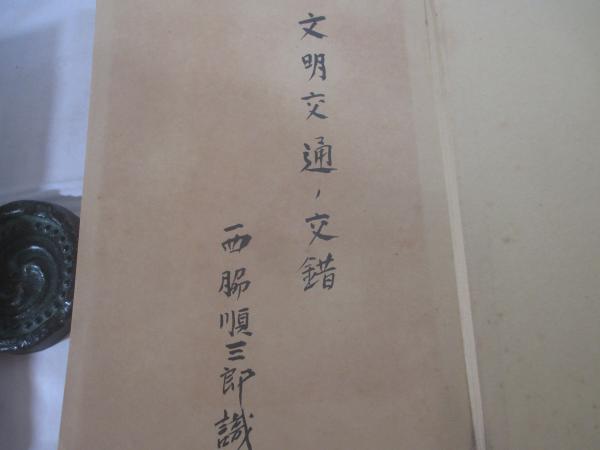 文明交通、交錯
西脇順三郎識